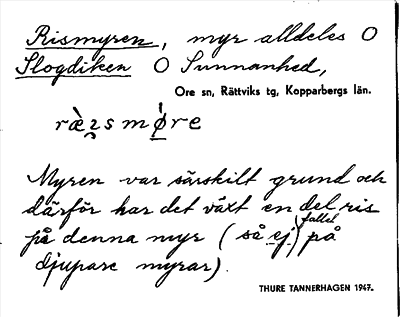 Rismyren, myr alldeles O
Slogdiken O Sunnanhed,
Ore sn, Rättviks tg, Kopparbergs län.
Myren var särskilt grund och
därför har det växt en del ris
på denna myr (så ej fallet på
djupare myrar).
THURE TANNERHAGEN 1947.